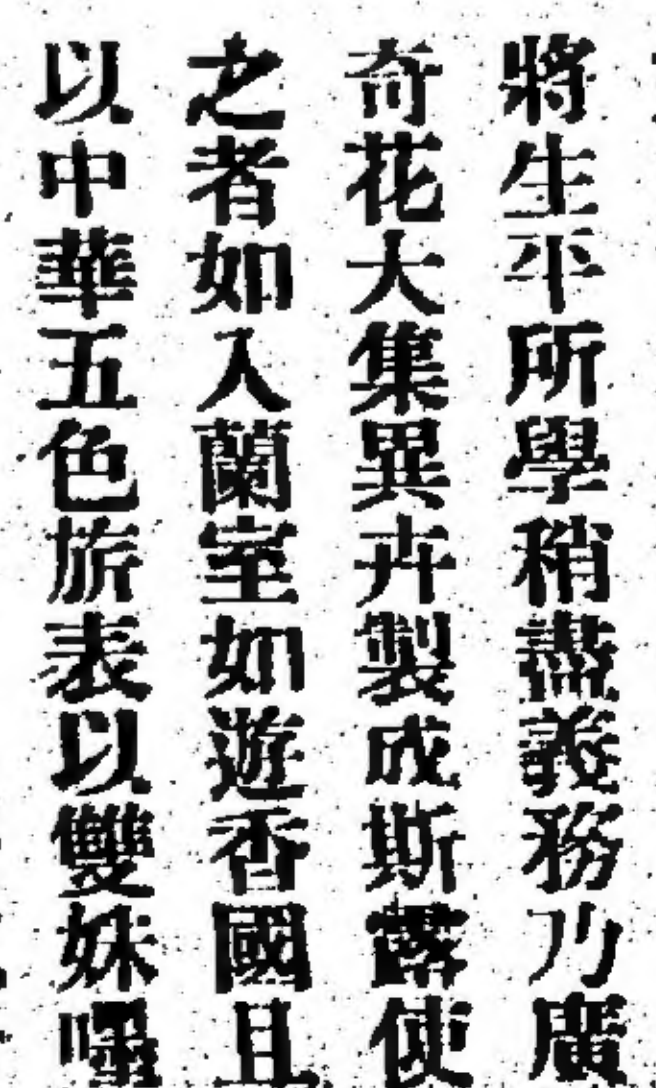 將生平所學稍盡義務乃廣
奇花大集異卉製成斯露使
之者如入蘭室如遊香國且
以中華五色旂表以雙妹嘜